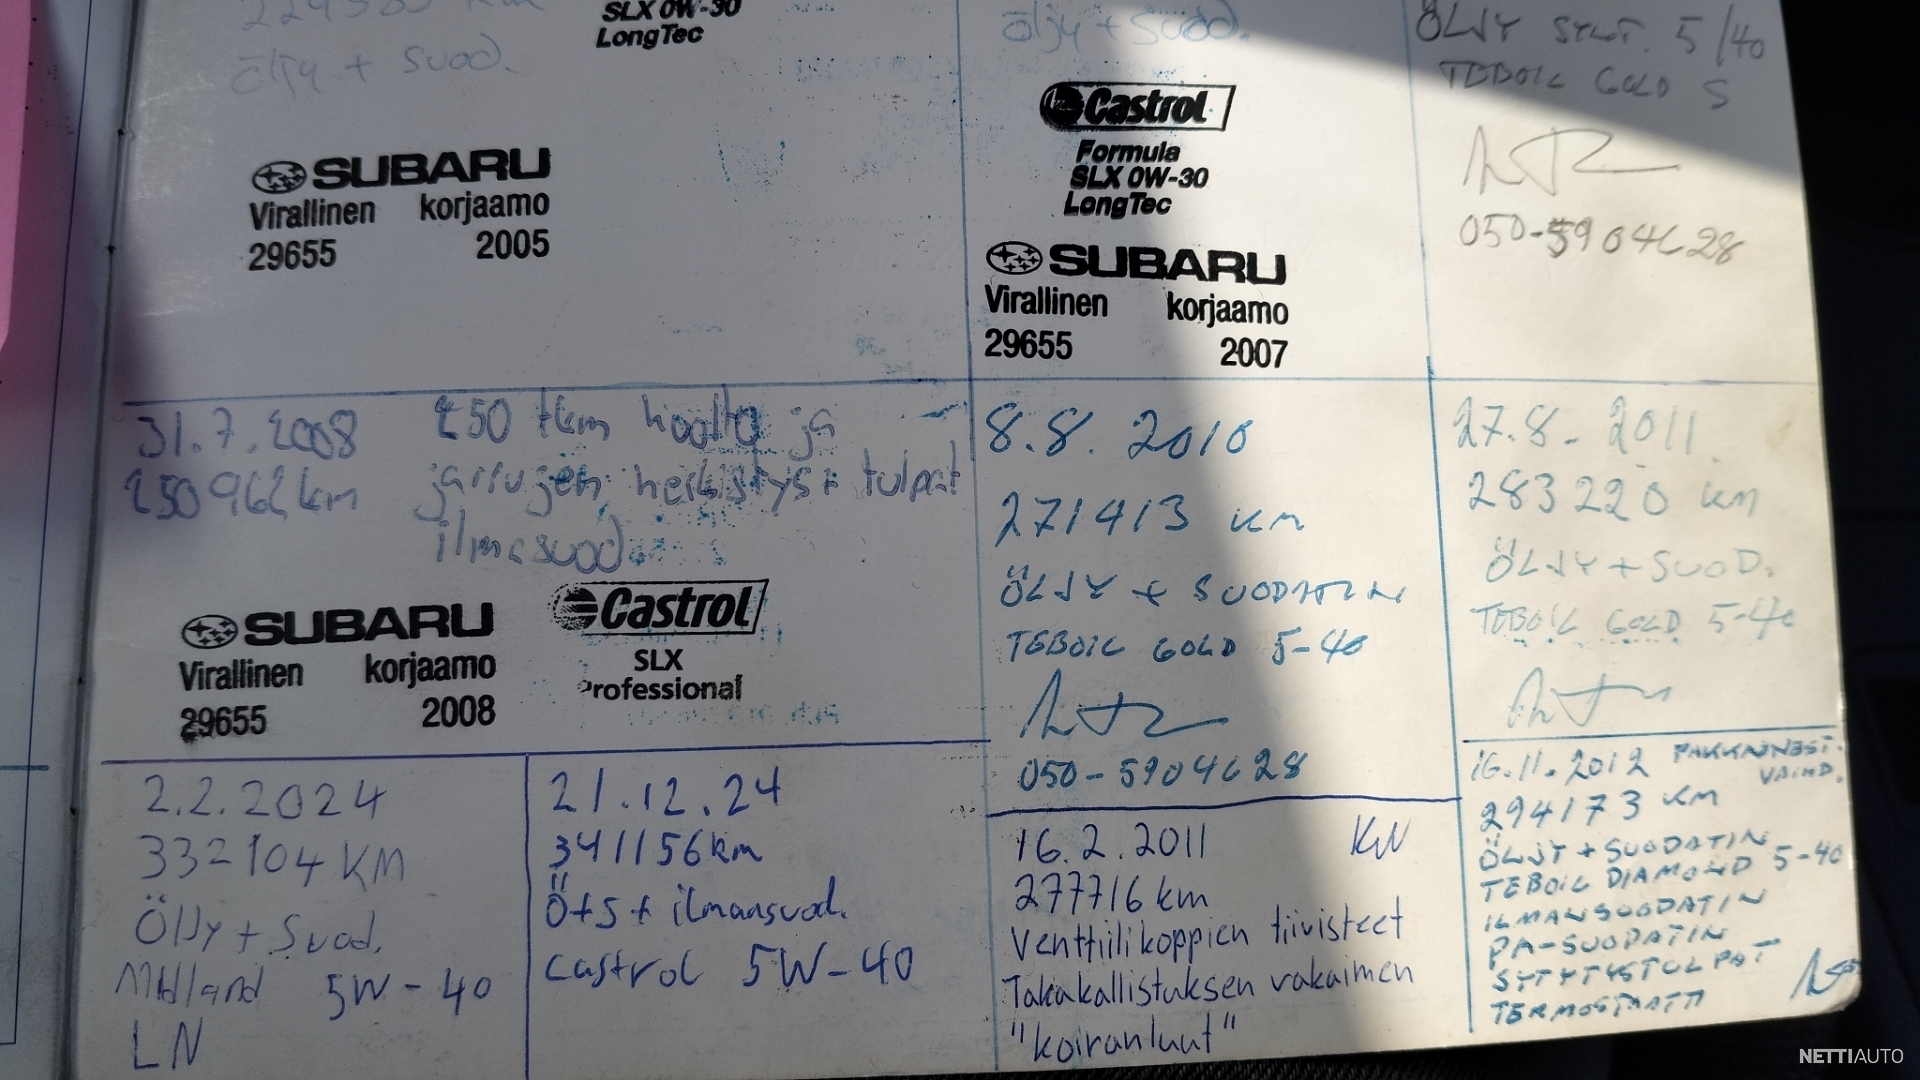 km
SLX 0W-30
LongTec
öljy + Suod.
SUBARU
Virallinen korjaamo
29655 2005
öljy + Suod.
Castrol
Formula
SLX 0W-30
LongTec
SUBARU
Virallinen korjaamo
29655 2007
ÖLJY SYNT. 5/40
TEBOIL GOLD S
050-5904628
31.7.2008 250 tkm huolto ja
250962km jarrujen herkistys + tulpat
ilmasuod.
SUBARU
Virallinen korjaamo
29655 2008
Castrol
SLX
Professional
8.8.2010
271413 km
ÖLJY + SUODATIN
TEBOIL GOLD 5-40
050-5904628
27.8.2011.
283220 km
ÖLJY + SUOD.
TEBOIL GOLD 5-40
2.2.2024
332104 KM
Öljy + Suod.
Midland 5W-40
LN
21.12.24
341156km
Ö+S + ilmansuod.
Castrol 5W-40
16.2.2011 KN
277716 km
Venttiilikoppien tiivisteet
Takakallistuksen vakaimen
"koiranluut"
16.11.2012 PAKKASNEST.
VAIHD.
294173 KM
ÖLJYT + SUODATIN
TEBOIL DIAMOND 5-40
ILMANSUODATIN
PA-SUODATIN
SYTYTYSTULPAT
TERMOSTAATTI
NETTIAUTO